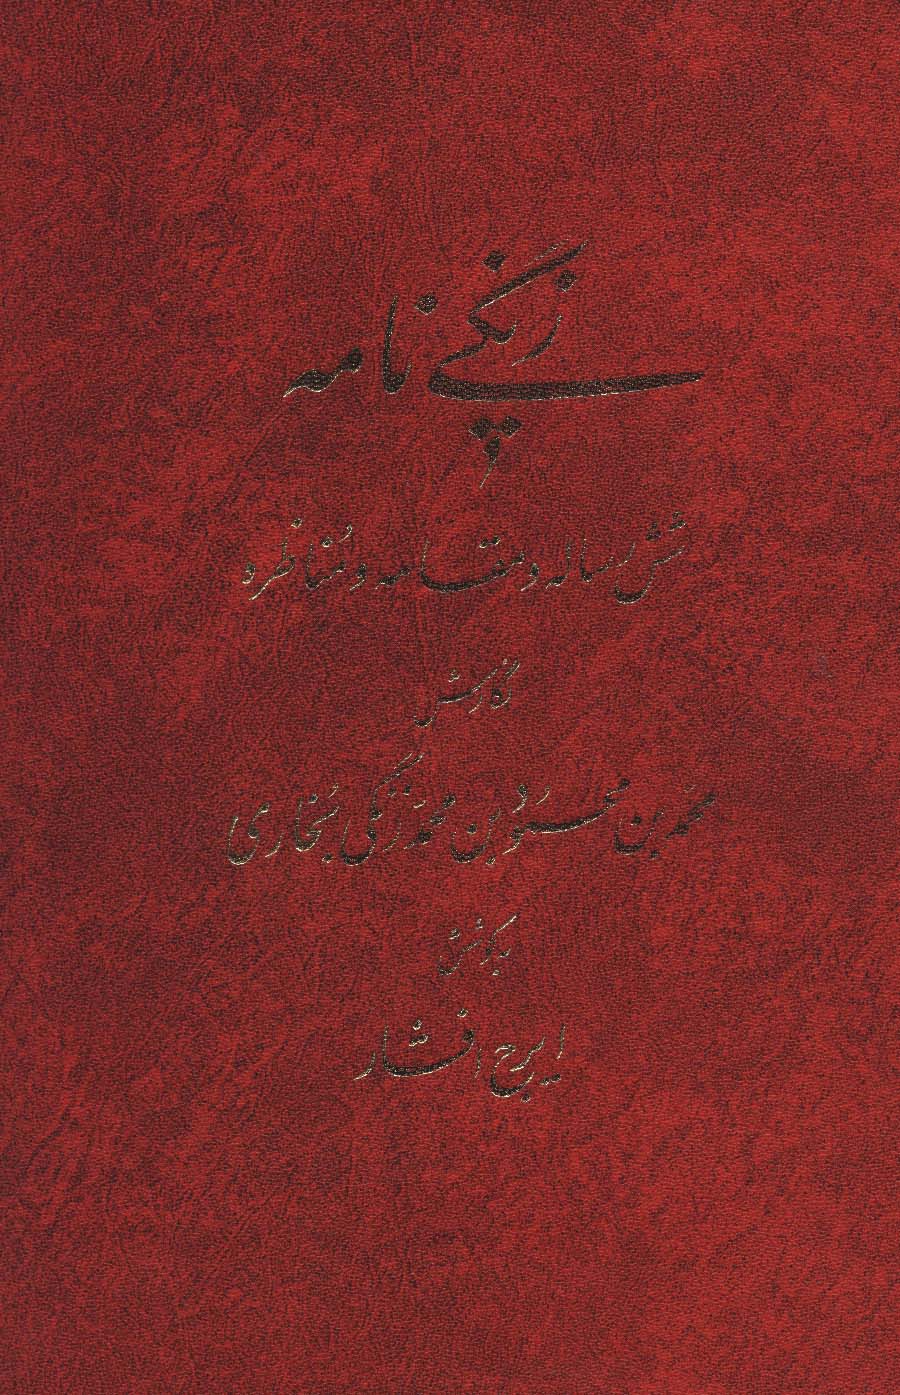 زنگی نامه
و
شش رساله و مقامه و مُناظره
نگارش
محمّد بن محمود بن محمّد زنگی بُخاری
به کوشش
ایرج افشار